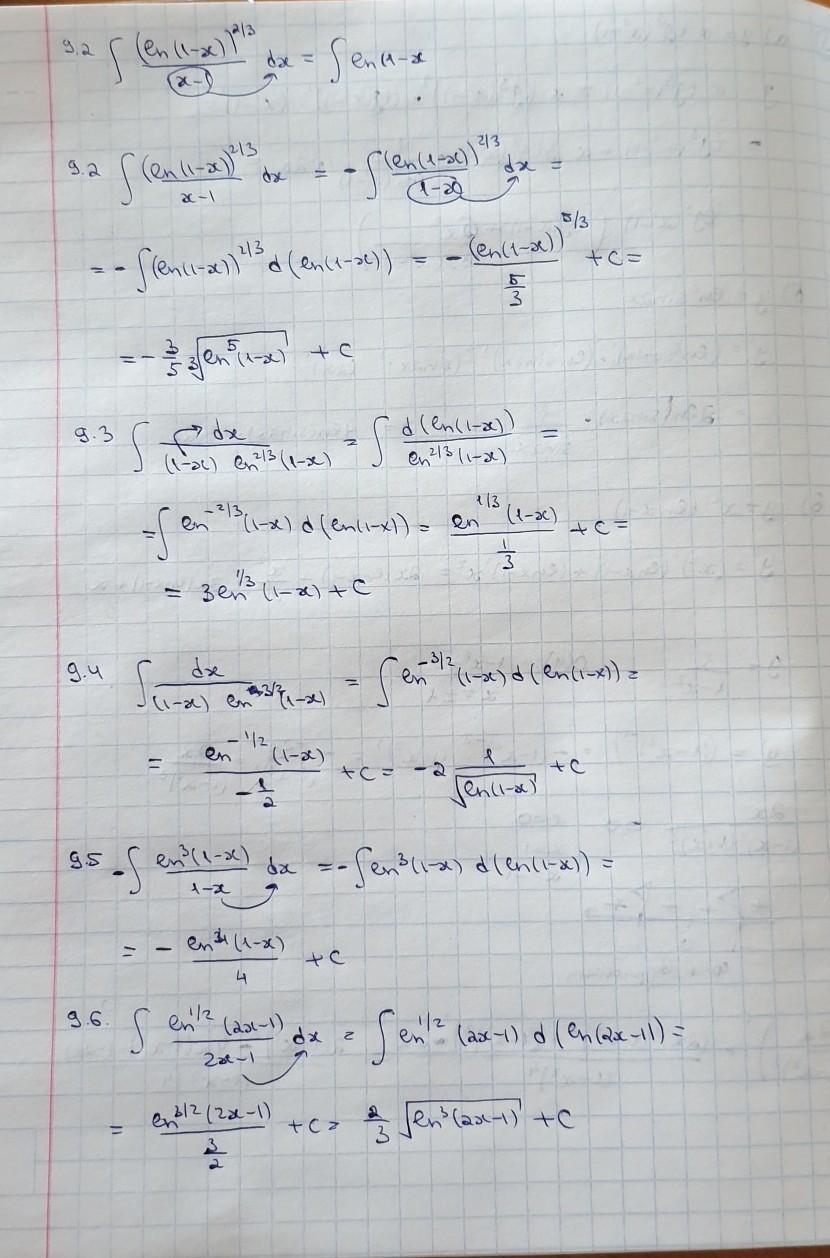 9.2 ∫ (ln(1-x))^{2/3} / (x-1) dx = ∫ ln(1-x
9.2 ∫ (ln(1-x))^{2/3} / (x-1) dx = - ∫ (ln(1-x))^{2/3} / (1-x) dx =
= - ∫ (ln(1-x))^{2/3} d(ln(1-x)) = - (ln(1-x))^{5/3} / (5/3) + C =
= - 3/5 ∛(ln^5(1-x)) + C
9.3 ∫ dx / ((1-x) ln^{2/3}(1-x)) = ∫ d(ln(1-x)) / ln^{2/3}(1-x) =
= ∫ ln^{-2/3}(1-x) d(ln(1-x)) = ln^{1/3}(1-x) / (1/3) + C =
= 3ln^{1/3}(1-x) + C
9.4 ∫ dx / ((1-x) ln^{3/2}(1-x)) = ∫ ln^{-3/2}(1-x) d(ln(1-x)) =
= ln^{-1/2}(1-x) / (-1/2) + C = -2 1/√(ln(1-x)) + C
9.5 - ∫ ln^3(1-x) / (1-x) dx = - ∫ ln^3(1-x) d(ln(1-x)) =
= - ln^4(1-x) / 4 + C
9.6. ∫ ln^{1/2}(2x-1) / (2x-1) dx = ∫ ln^{1/2}(2x-1) d(ln(2x-1)) =
= ln^{3/2}(2x-1) / (3/2) + C = 2/3 √(ln^3(2x-1)) + C